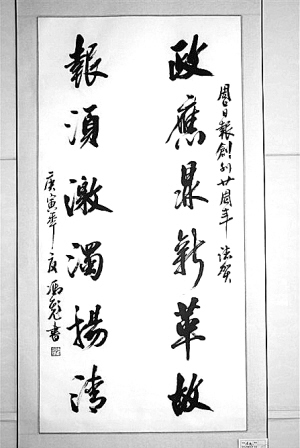 周口日報創刊廿周年 誌賀
政應鼎新革故
報須激濁揚清
庚寅年夏 馮 書